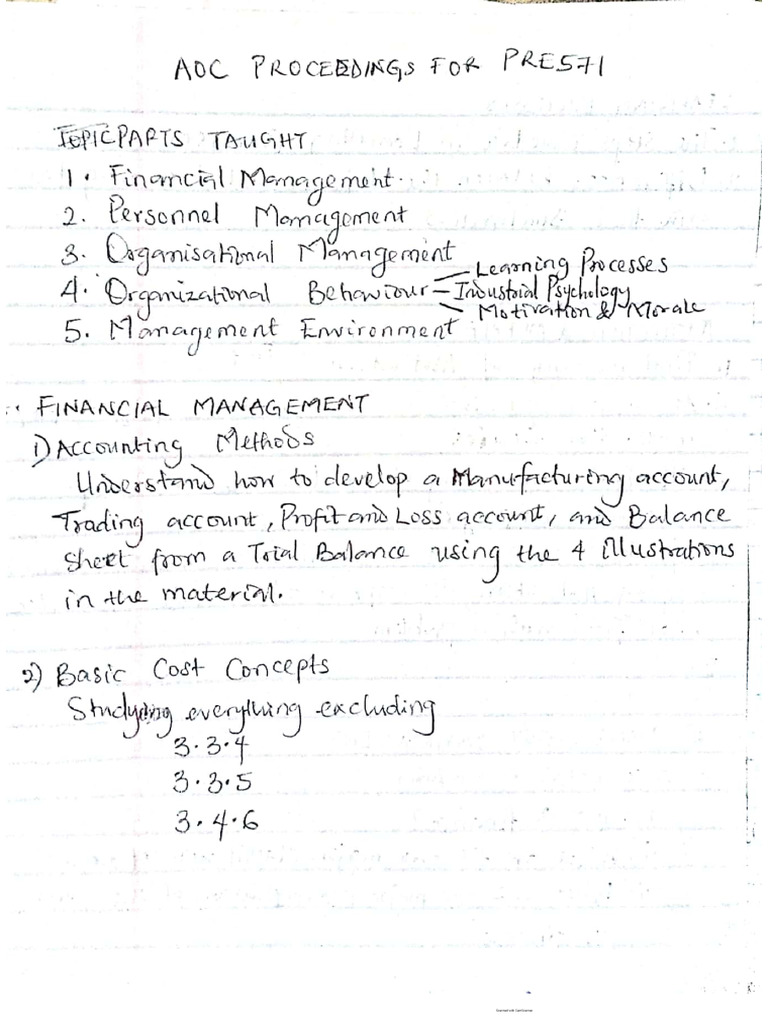 AOC PROCEEDINGS FOR PRE571
TOPIC PARTS TAUGHT
1. Financial Management.
2. Personnel Management
3. Organisational Management
4. Organizational Behaviour – Learning Processes
– Industrial Psychology
– Motivation & Morale
5. Management Environment
FINANCIAL MANAGEMENT
1) Accounting Methods
Understand how to develop a Manufacturing account,
Trading account, Profit and Loss account, and Balance
Sheet from a Trial Balance using the 4 illustrations
in the material.
2) Basic Cost Concepts
Studying everything excluding
3.3.4
3.3.5
3.4.6